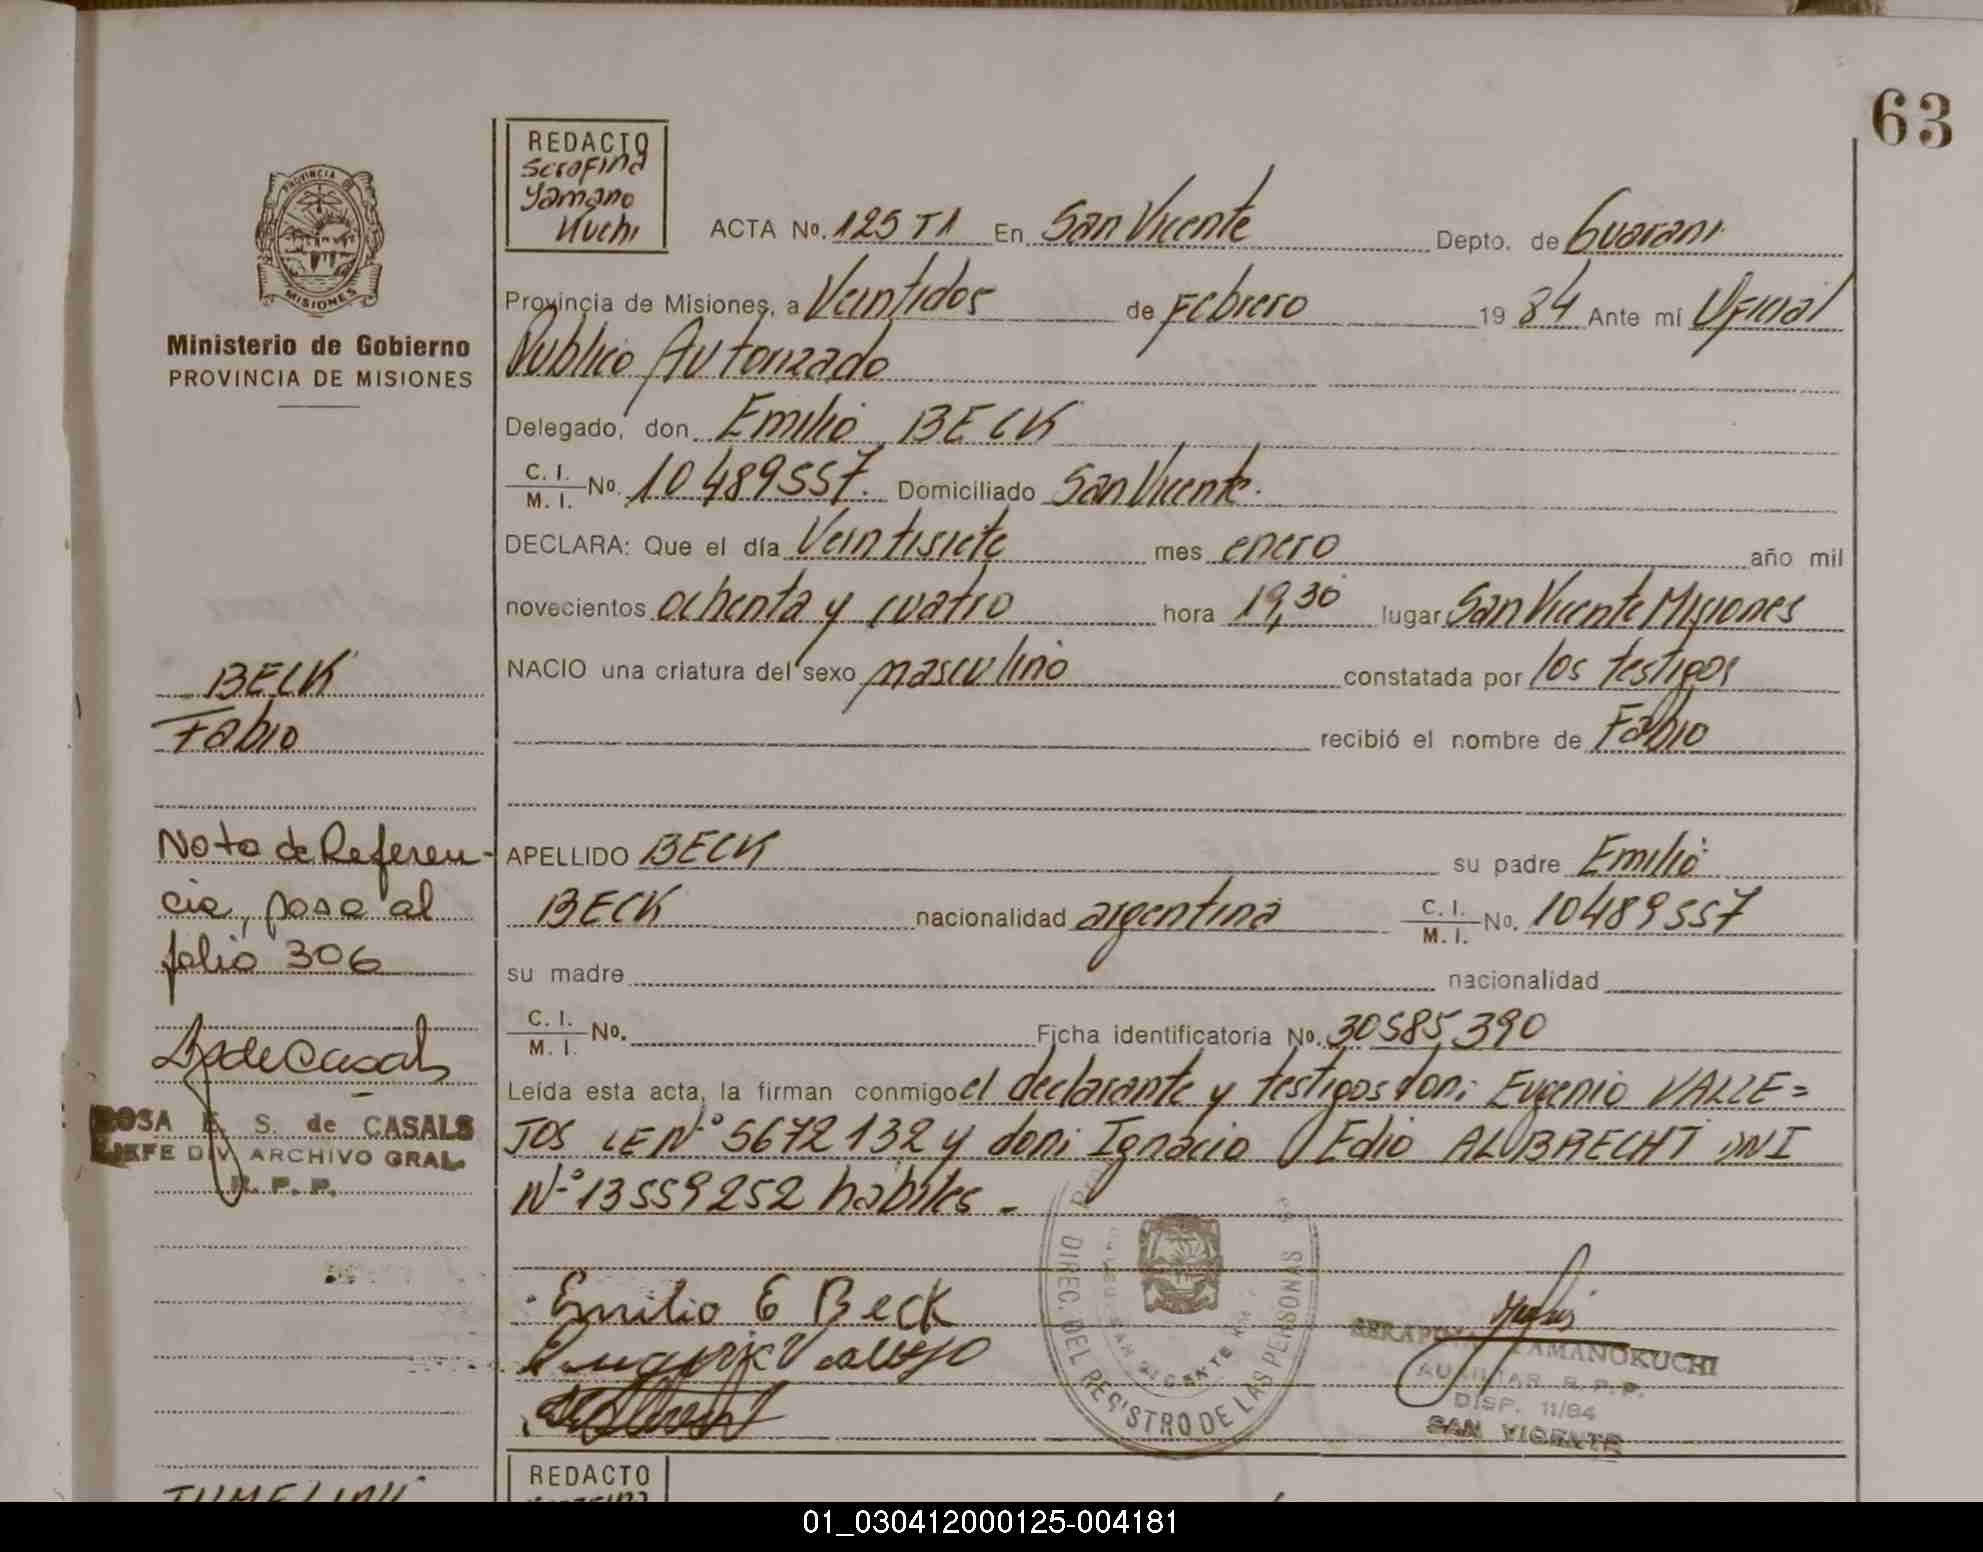 63
REDACTO
Serafina
Yamano
Kuchi
PROVINCIA
MISIONES
Ministerio de Gobierno
PROVINCIA DE MISIONES
ACTA No. 125 T1 En San Vicente Depto. de Guarani
Provincia de Misiones, a Veintidos de Febrero 19 84 Ante mí Oficial
Publico Autorizado
Delegado, don Emilio BECK
C. I. / M. I. No. 10489557. Domiciliado San Vicente.
DECLARA: Que el día Veintisiete mes enero año mil
novecientos ochenta y cuatro hora 19,30 lugar San Vicente Misiones
NACIO una criatura del sexo masculino constatada por los testigos
recibió el nombre de Fabio
BECK
Fabio
APELLIDO BECK su padre Emilio
BECK nacionalidad argentina C. I. / M. I. No. 10489557
su madre nacionalidad
C. I. / M. I. No. Ficha identificatoria No. 30585,390
Leída esta acta, la firman conmigo el declarante y testigos don: Eugenio VALLE=
JOS LE Nº 5672132 y don: Ignacio Edio ALBRECHT DNI
Nº 13559252 habiles -
Nota de Referen-
cia, pasa al
folio 306
ROSA E. S. de CASALS
JEFE DIV. ARCHIVO GRAL.
R. P. P.
Emilio E Beck
DIREC. DEL REGISTRO DE LAS PERSONAS
SERAFINA YAMANOKUCHI
AUXILIAR R. P. P.
DISP. 11/84
SAN VICENTE
REDACTO
01_030412000125-004181